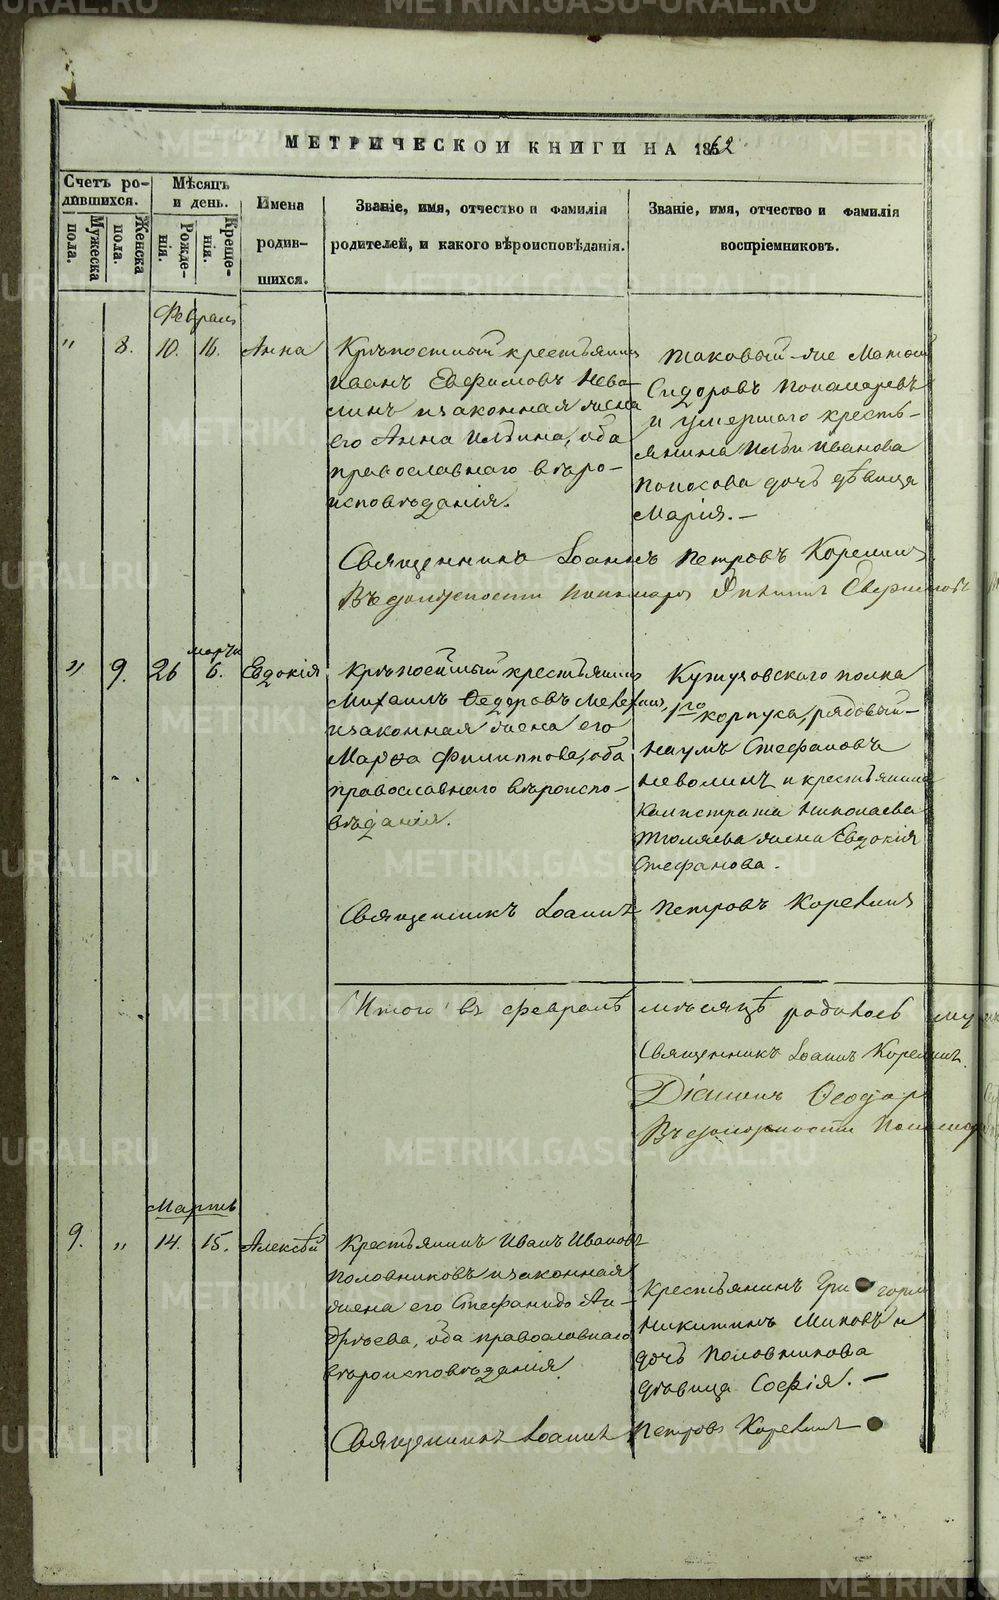 МЕТРИЧЕСКОЙ КНИГИ НА 1862
Счетъ ро-
дившихся.
Мужеска
пола.
Женска
пола.
Мѣсяцъ
и день.
Рожде-
нія.
Креще-
нія.
Имена
родив-
шихся.
Званіе, имя, отчество и фамилія
родителей, и какого вѣроисповѣданія.
Званіе, имя, отчество и фамилія
воспріемниковъ.
Февраль
" 8. 10. 16. Анна
Крѣпостный крестьянинъ
Иванъ Евфимовъ Нево-
линъ и законная жена
его Анна Ильина, оба
православнаго вѣро-
исповѣданія.
таковый-же Матвѣй
Сидоровъ Пономаревъ
и умершаго кресть-
янина Ильи Иванова
дочь дѣвица
Марія. —
Священникъ Іоаннъ Петровъ Корелинъ
Въ должности Пономаря
марта
" 9. 26 6. Евдокія
Крѣпостный крестьянинъ
Михаилъ Ѳедоровъ
и законная жена его
Марѳа Филиппова, оба
православнаго вѣроиспо-
вѣданія.
полка
1го корпуса, рядовый
Наумъ Стефановъ
Неволинъ и крестьянина
Калистрата Николаева
жена Евдокія
Стефанова.
Священникъ Іоаннъ Петровъ Корелинъ
Итого въ февралѣ мѣсяцѣ родилось
Священникъ Іоаннъ Корелинъ
Діаконъ Ѳеодор
Въ должности Пономар
Мартъ
9. " 14. 15. Алексѣй
Крестьянинъ Иванъ Ивановъ
Половниковъ и законная
жена его Стефанида Ан-
дреева, оба православнаго
вѣроисповѣданія
Крестьянинъ Григорій
Никитинъ и
дочь Половникова
дѣвица Софія. —
Священникъ Іоаннъ Петровъ Корелинъ
METRIKI.GASO-URAL.RU